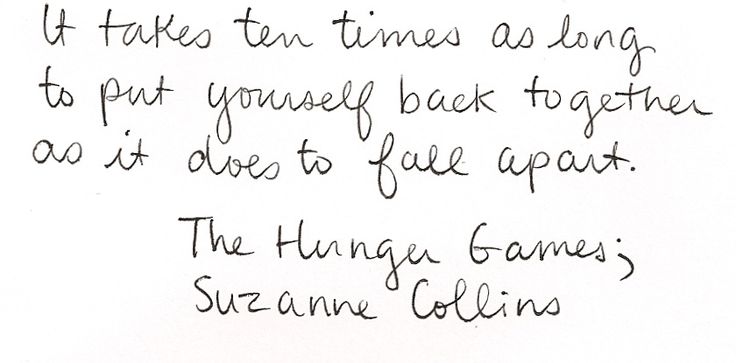 It takes ten times as long
to put yourself back together
as it does to fall apart.
The Hunger Games;
Suzanne Collins